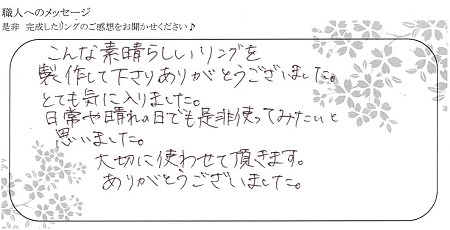 職人へのメッセージ
是非 完成したリングのご感想をお聞かせください♪
こんな素晴らしいリングを
製作して下さりありがとうございました。
とても気に入りました。
日常や晴れの日でも是非使ってみたいと
思いました。
大切に使わせて頂きます。
ありがとうございました。